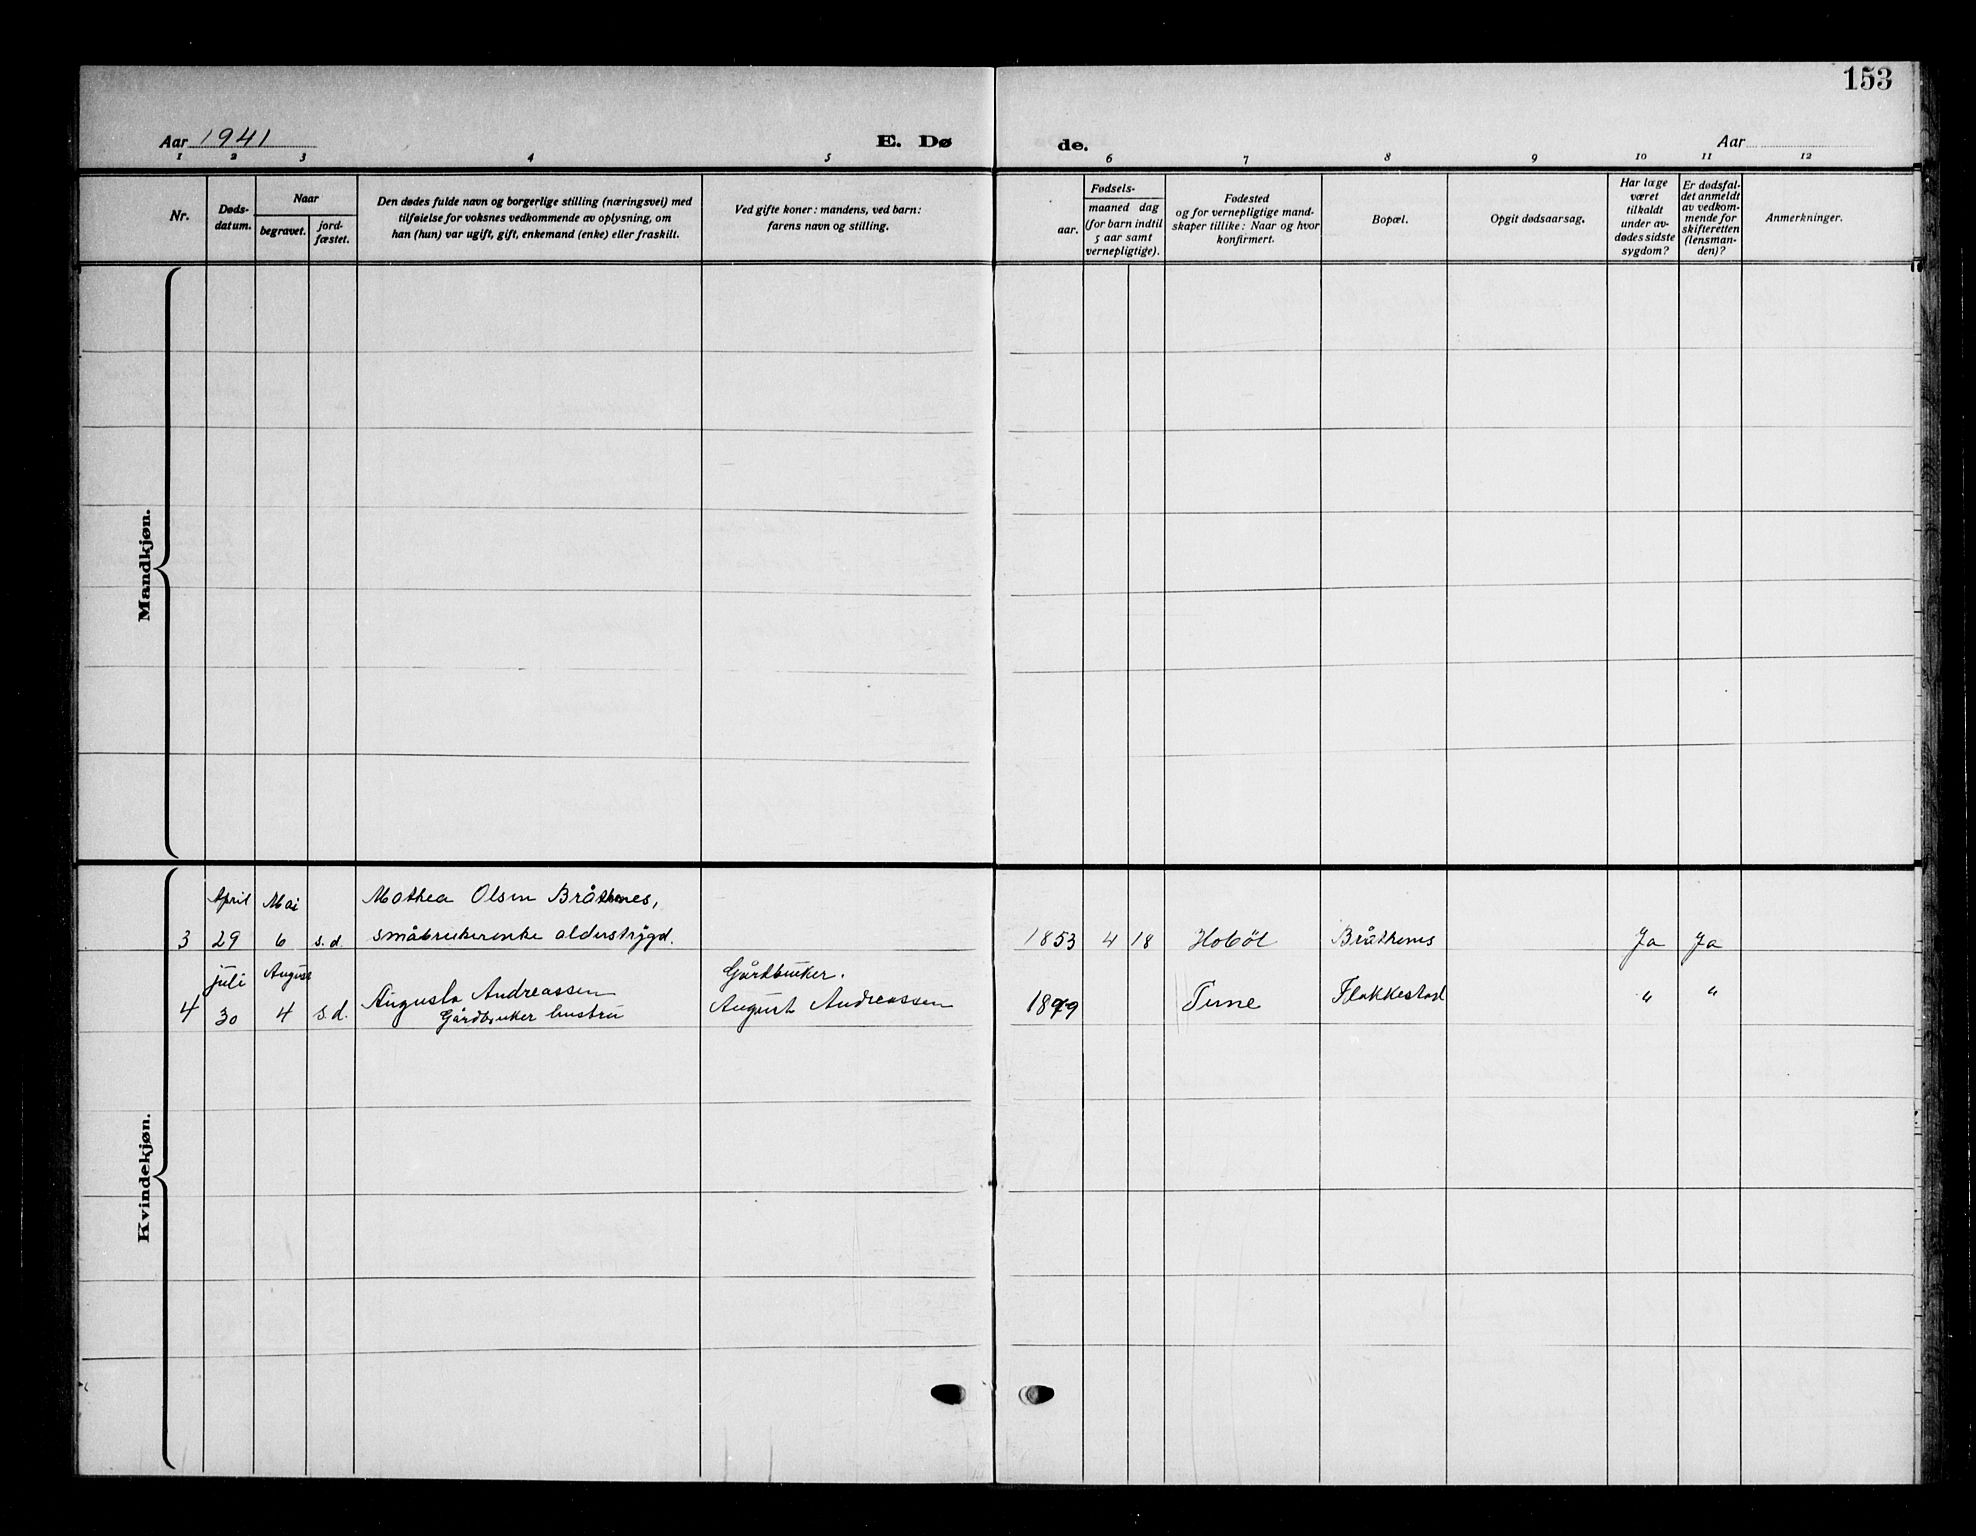 153
Aar 1941
E. Dø
de.
Aar
1 2 3 4 5 6 7 8 9 10 11 12
Nr.
Døds-
datum.
Naar
begravet.
jord-
fæstet.
Den dødes fulde navn og borgerlige stilling (næringsvei) med
tilføielse for voksnes vedkommende av oplysning, om
han (hun) var ugift, gift, enkemand (enke) eller fraskilt.
Ved gifte koner: mandens, ved barn:
farens navn og stilling.
Fødsels-
aar.
maaned dag
(for barn indtil
5 aar samt
vernepligtige).
Fødested
og for vernepligtige mand-
skaper tillike: Naar og hvor
konfirmert.
Bopæl.
Opgit dødsaarsag.
Har læge
været
tilkaldt
under av-
dødes sidste
sygdom?
Er dødsfal-
det anmeldt
av vedkom-
mende for
skifteretten
(lensman-
den)?
Anmerkninger.
Mandkjøn.
Kvindekjøn.
April Mai Mathea Olsen Bråthenes,
3 29 6 s.d. småbrukerenke alderstrygd. 1853 4 18 Hobøl Bråthenes Ja Ja
juli August Gårdbruker.
4 30 4 s.d. Augusta Andreassen August Andreassen Tune Flakkestad " "
Gårdbruker hustru